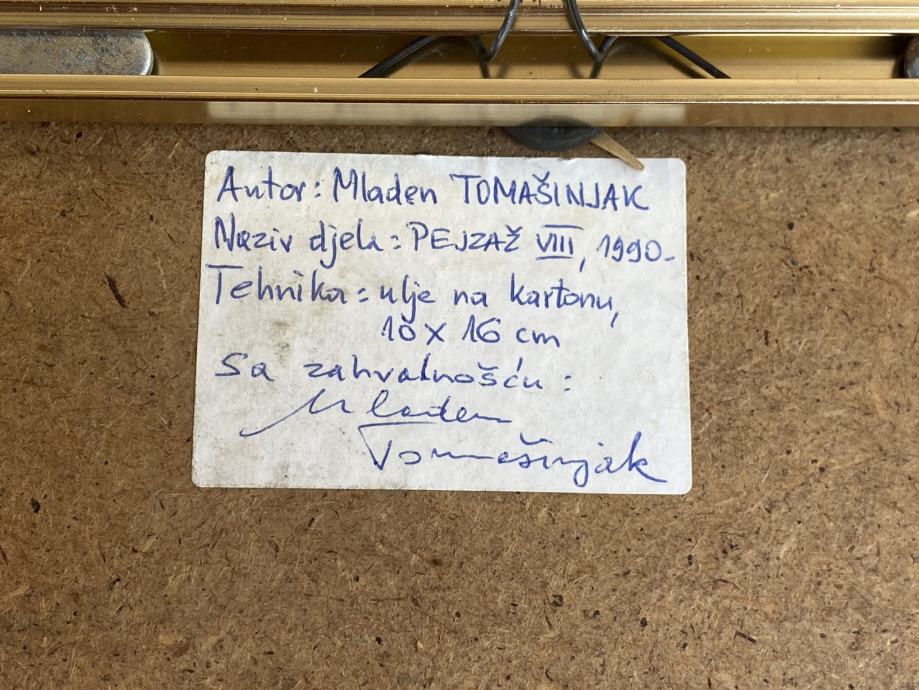 Autor: Mladen TOMAŠINJAK
Naziv djela: PEJZAŽ VIII, 1990.
Tehnika: ulje na kartonu,
10 x 16 cm
Sa zahvalnošću:
Mladen
Tomašinjak